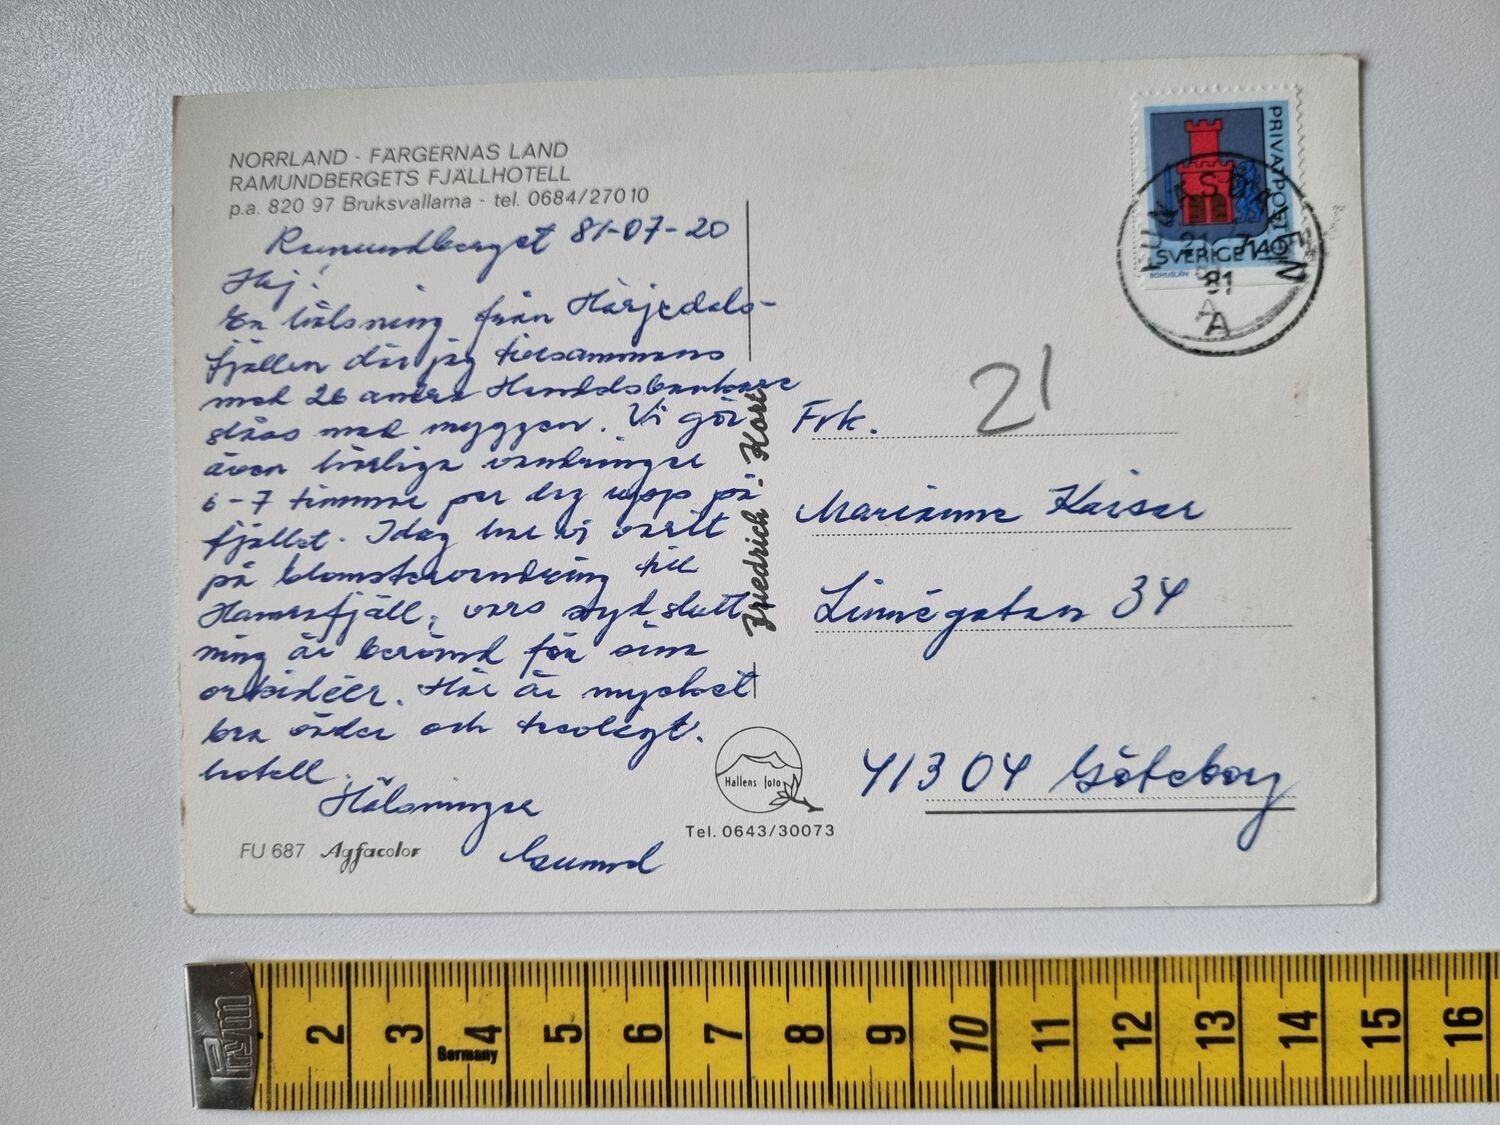 NORRLAND - FÄRGERNAS LAND
RAMUNDBERGETS FJÄLLHOTELL
p.a. 820 97 Bruksvallarna - tel. 0684/27010
Ramundberget 81-07-20
Hej!
En hälsning från Härjedals-
fjällen där jag tillsammans
med 26 andra Handelsbankare
slåss med myggen. Vi gör
även härliga vandringar
6-7 timmar per dag upp på
fjället. Idag har vi varit
på blomstervandring till
Hamrafjäll, vars sydslutt
ning är berömd för sina
orkidéer. Här är mycket
bra väder och trevligt
hotell.
Hälsningar
Gunvod
FU 687 Agfacolor
Friedrich-Kort
Hallens foto
Tel. 0643/30073
PRIVATPOST
SVERIGE 140
BOHUSLÄN
FUNÄSDALEN
21 7
81
A
21
Frk.
Marianne Kaiser
Linnégatan 34
41304 Göteborg
Prym
2 3 4 5 6 7 8 9 10 11 12 13 14 15 16
Germany